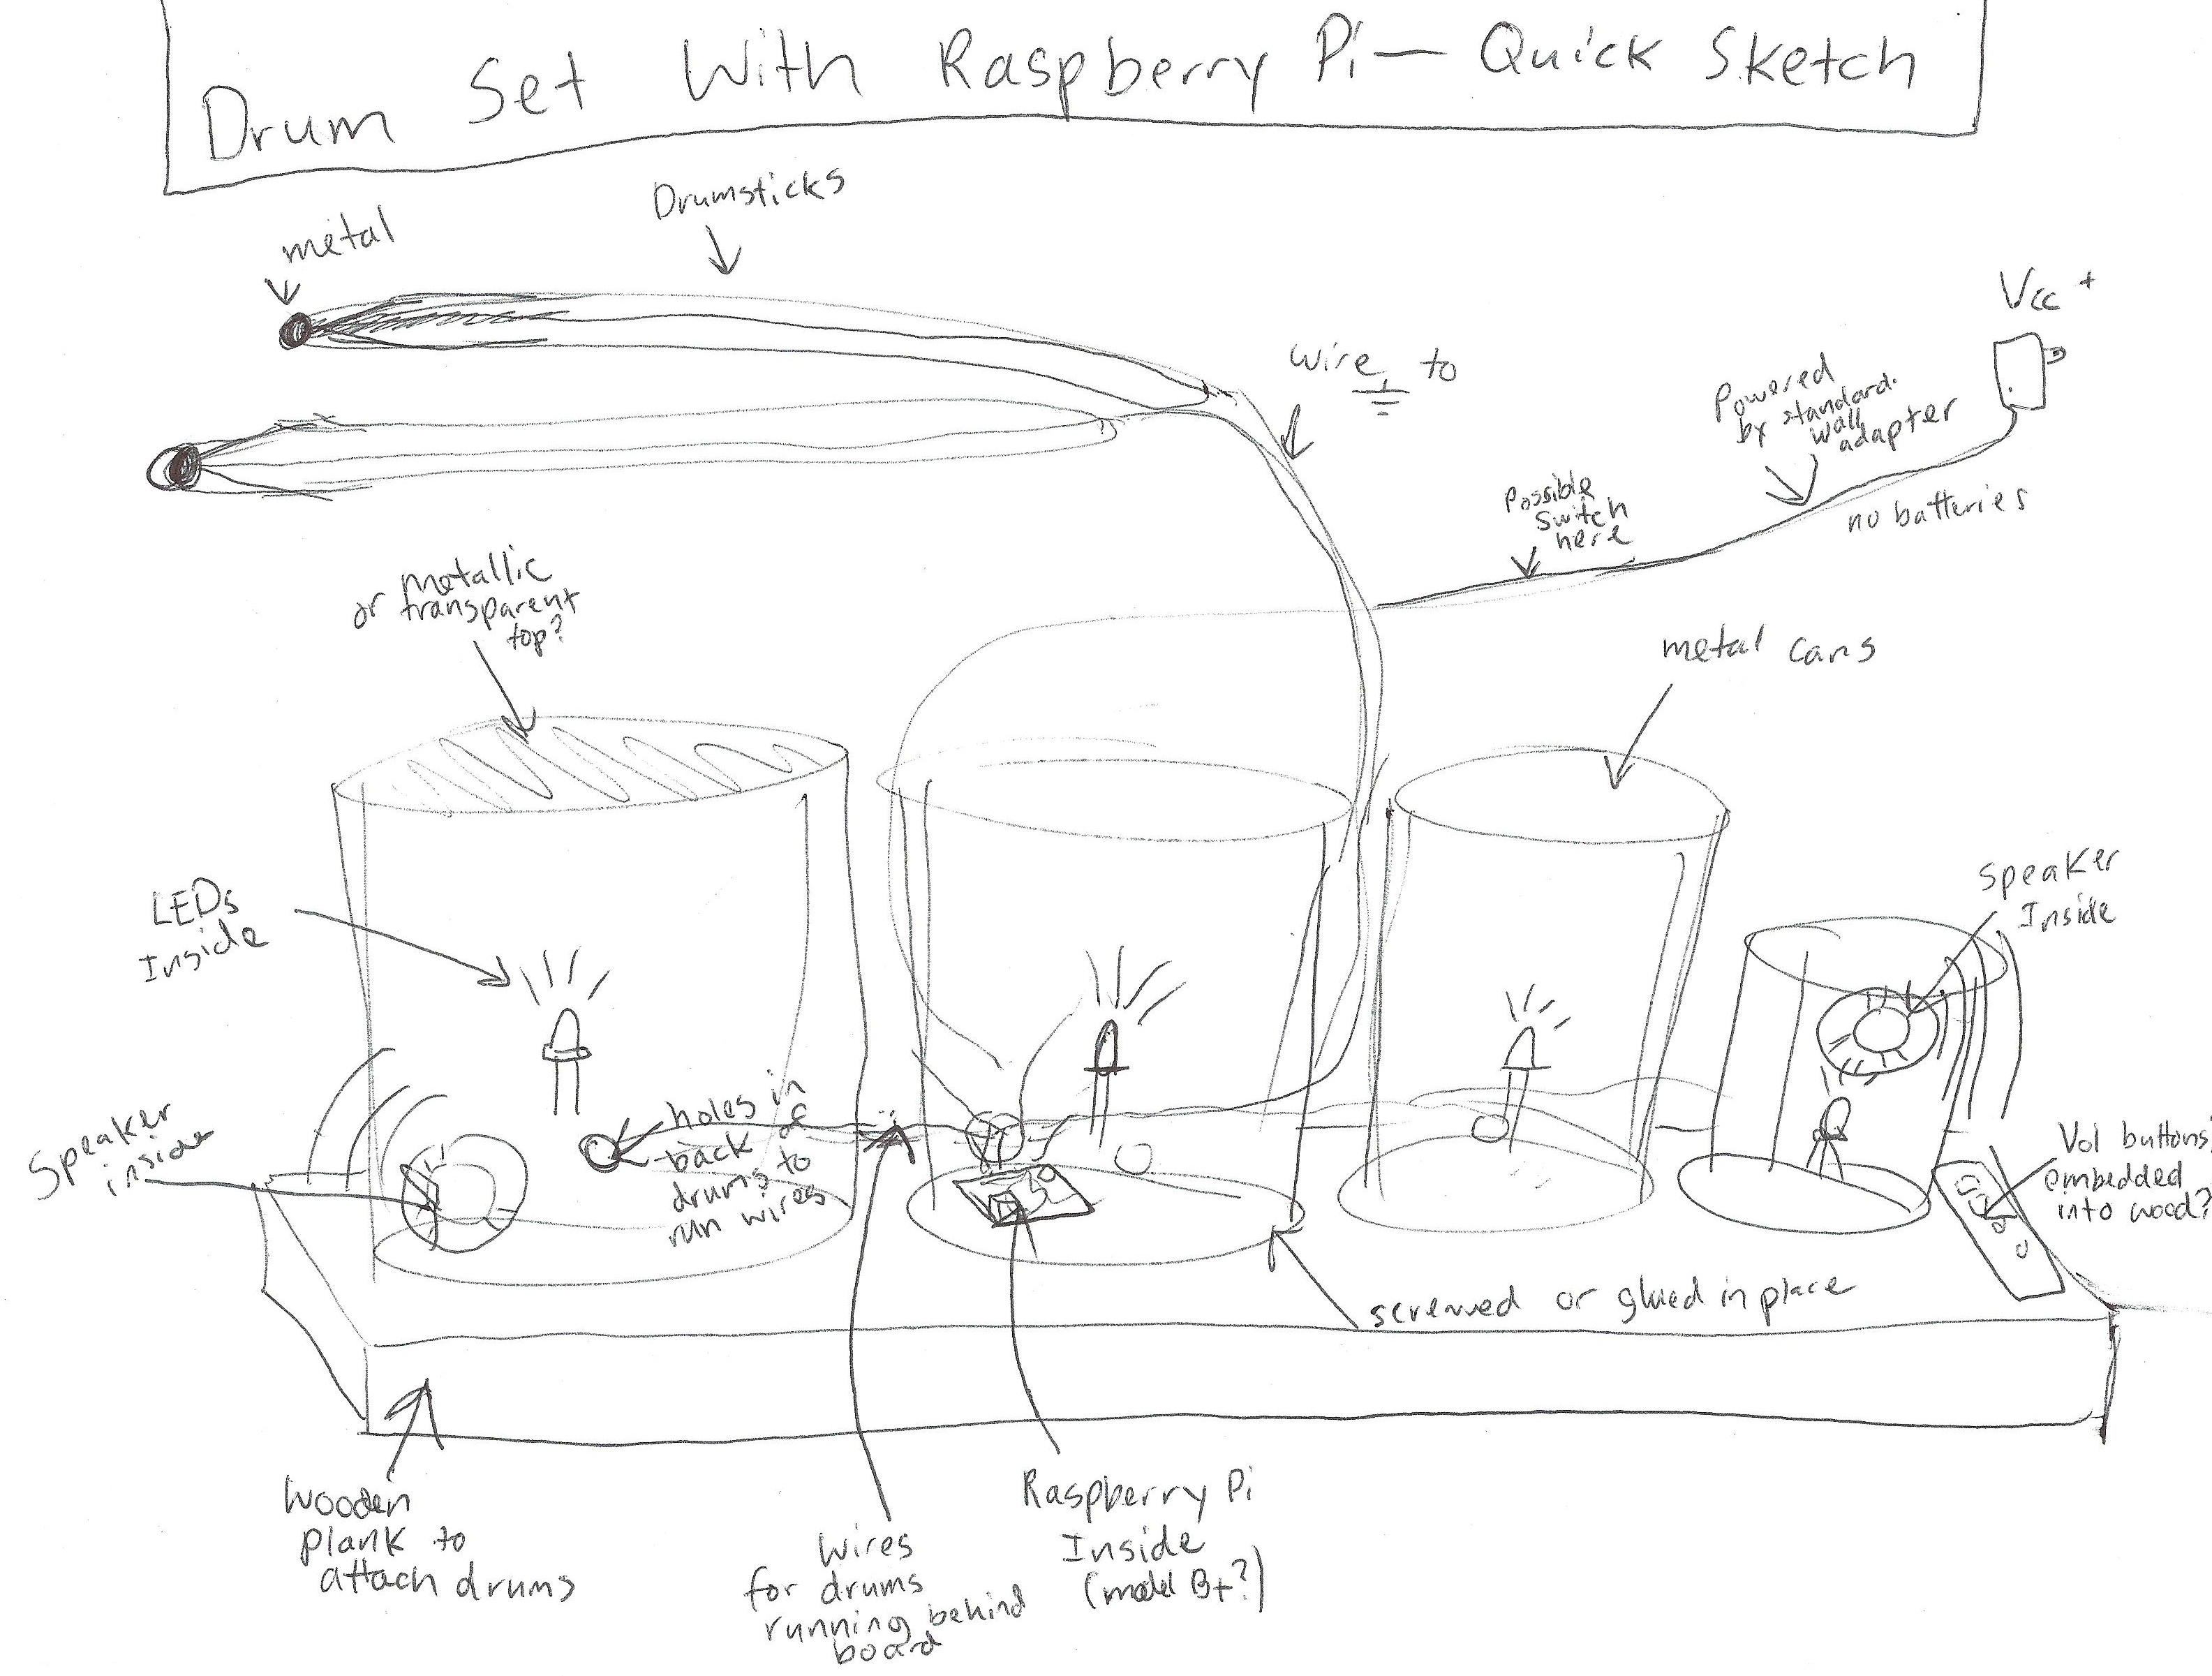 Drum Set With Raspberry Pi — Quick Sketch
metal
Drumsticks
wire to
Vcc +
Powered
by standard
wall
adapter
no batteries
Possible
switch
here
metallic
or transparent
top?
metal cans
LEDs
Inside
Speaker
Inside
Speaker
inside
holes in
back of
drums to
run wires
Vol buttons
embedded
into wood?
screwed or glued in place
Wooden
plank to
attach drums
Wires
for drums
running behind
board
Raspberry Pi
Inside
(model B+?)